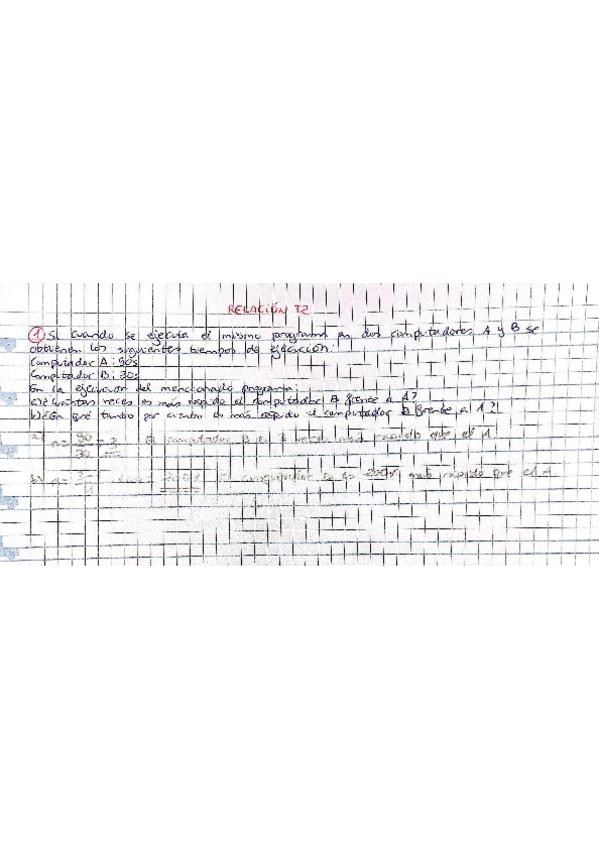 RELACIÓN T2
① Si cuando se ejecuta el mismo programa en dos computadores A y B se
obtienen los siguientes tiempos de ejecución:
Computador A: 90s
Computador B: 30s
En la ejecución del mencionado programa:
a) ¿Cuántas veces es más rápido el computador B frente a A?
b) ¿En qué tanto por ciento es más rápido el computador B frente a A?
a) a = 90/30 = 3 El computador B es 3 veces más rápido que el A
b) a = El computador B es más rápido que el A